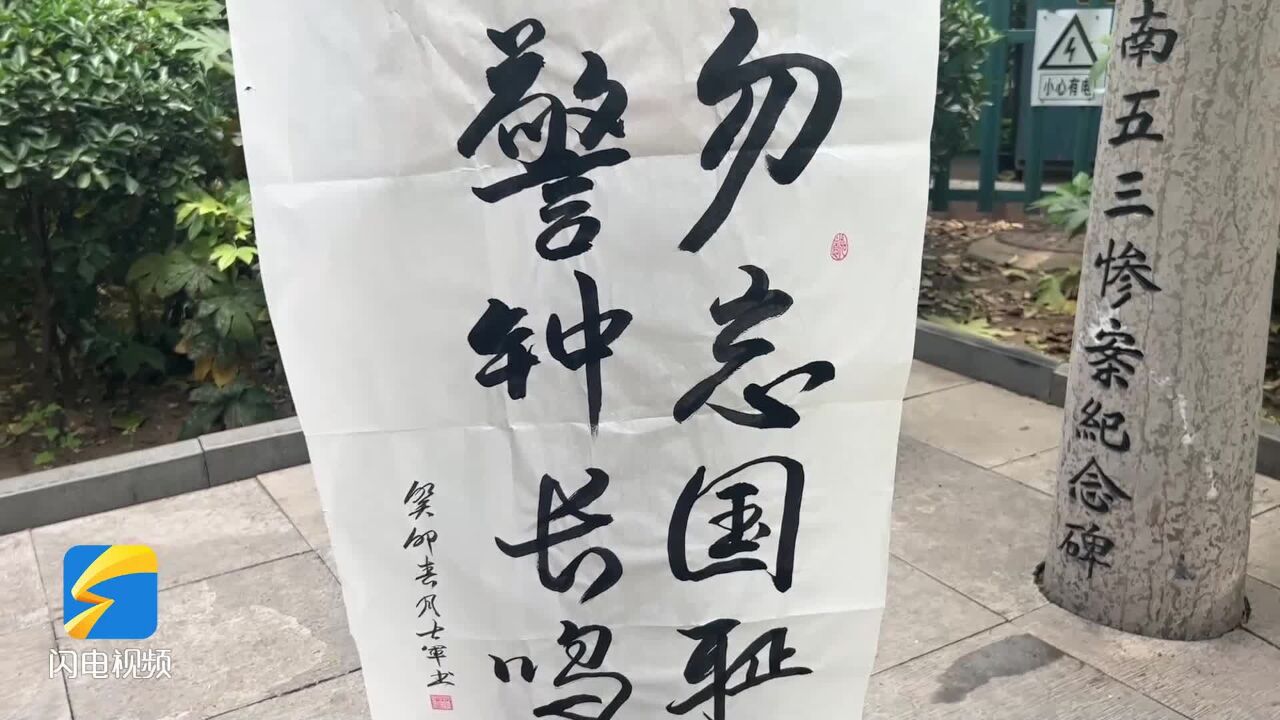 勿忘国耻
警钟长鸣
癸卯春月士军书
南五三惨案纪念碑
小心有电
闪电视频